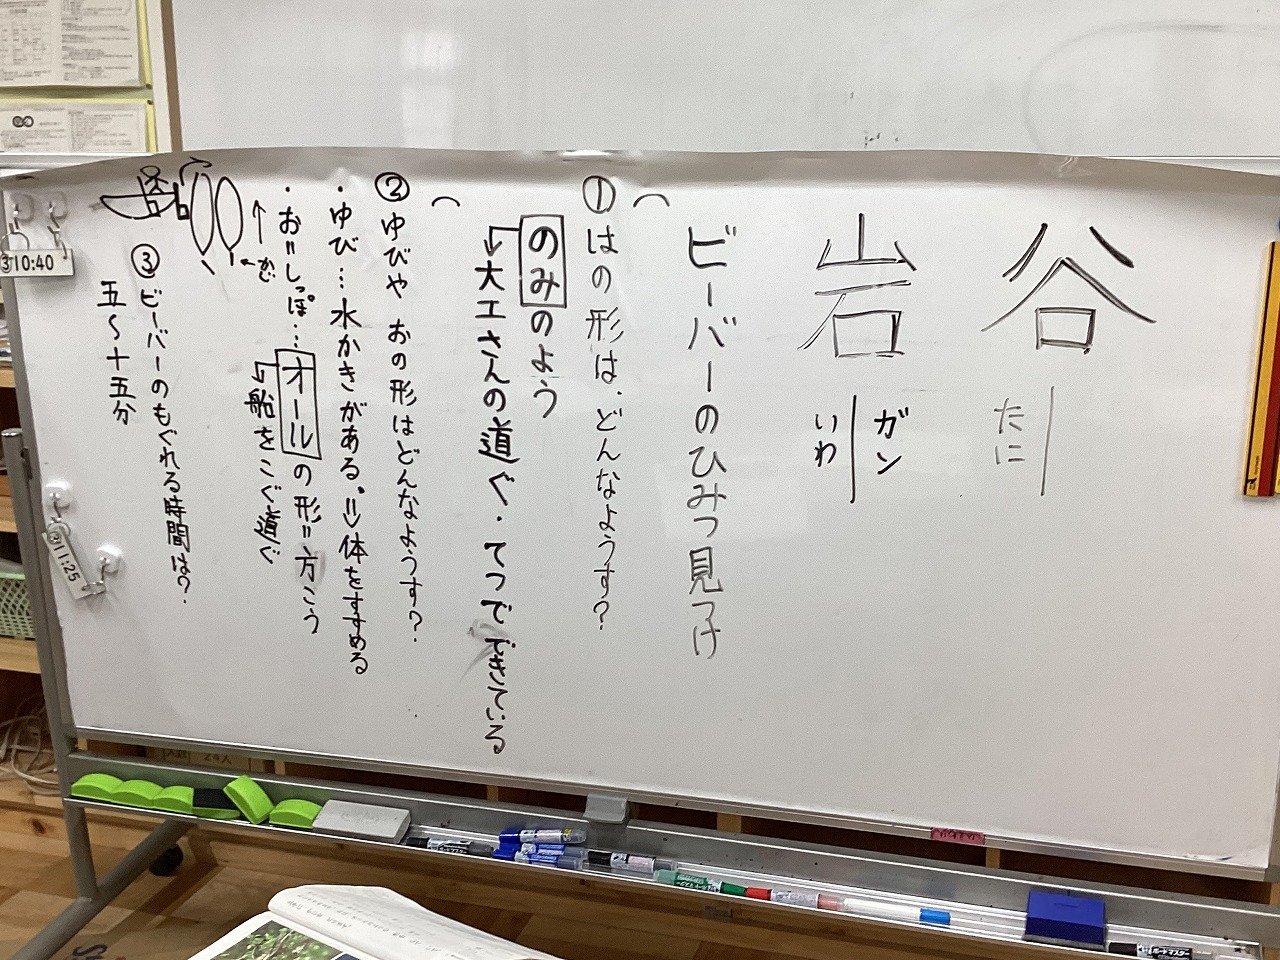 谷
たに
岩
ガン
いわ
ビーバーのひみつ見つけ
①はの形は、どんなようす?
のみのよう
→大工さんの道ぐ・てつでできている
②ゆびや おの形はどんなようす?
・ゆび…水かきがある。⇒体をすすめる
・お=しっぽ…オールの形=方こう
→船をこぐ道ぐ
←かじ
③ビーバーのもぐれる時間は?
五〜十五分
③10:40
③11:25